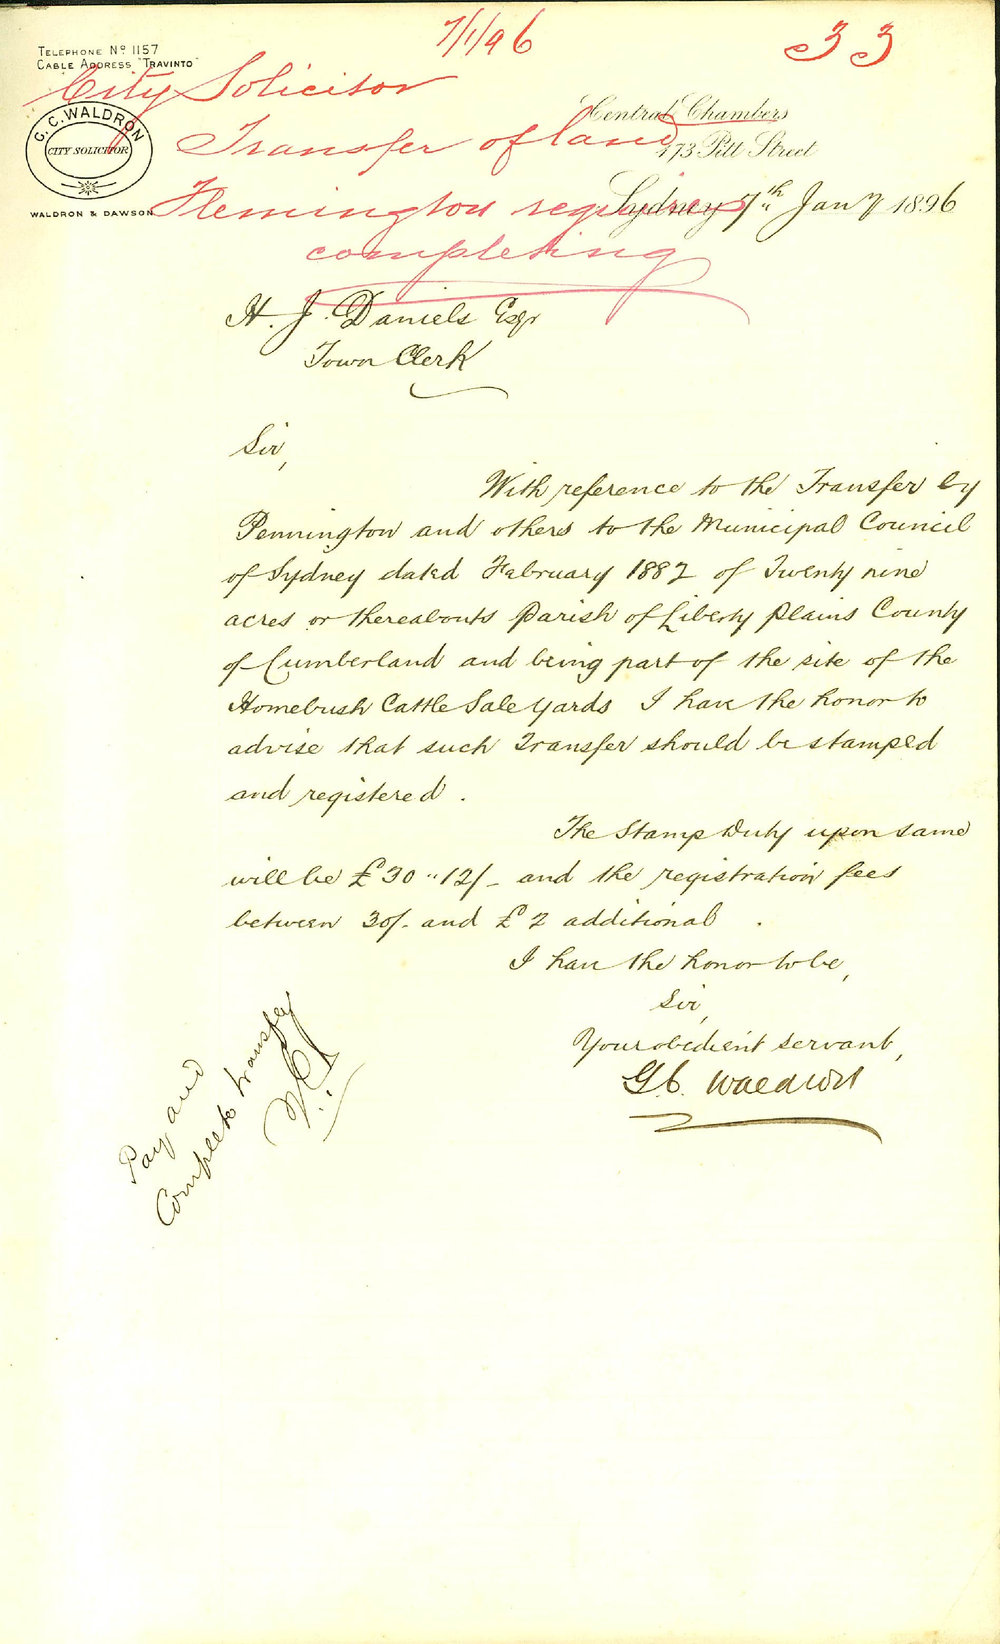 7/1/96
33
TELEPHONE Nº 1157
CABLE ADDRESS "TRAVINTO"
City Solicitor
G. C. WALDRON
CITY SOLICITOR
WALDRON & DAWSON
Central Chambers
473 Pitt Street
Transfer of land
Flemington requires
completing
Sydney 7th Jany 1896
H. J. Daniels Esqr
Town Clerk
Sir,
With reference to the Transfer by
Pennington and others to the Municipal Council
of Sydney dated February 1882 of Twenty nine
acres or thereabouts Parish of Liberty Plains County
of Cumberland and being part of the site of the
Homebush Cattle Sale yards I have the honor to
advise that such Transfer should be stamped
and registered.
The Stamp Duty upon same
will be £30 " 12/- and the registration fees
between 30/- and £2 additional.
I have the honor to be,
Sir,
Your obedient servant,
G.C. Waldron
Pay and
Complete transfer